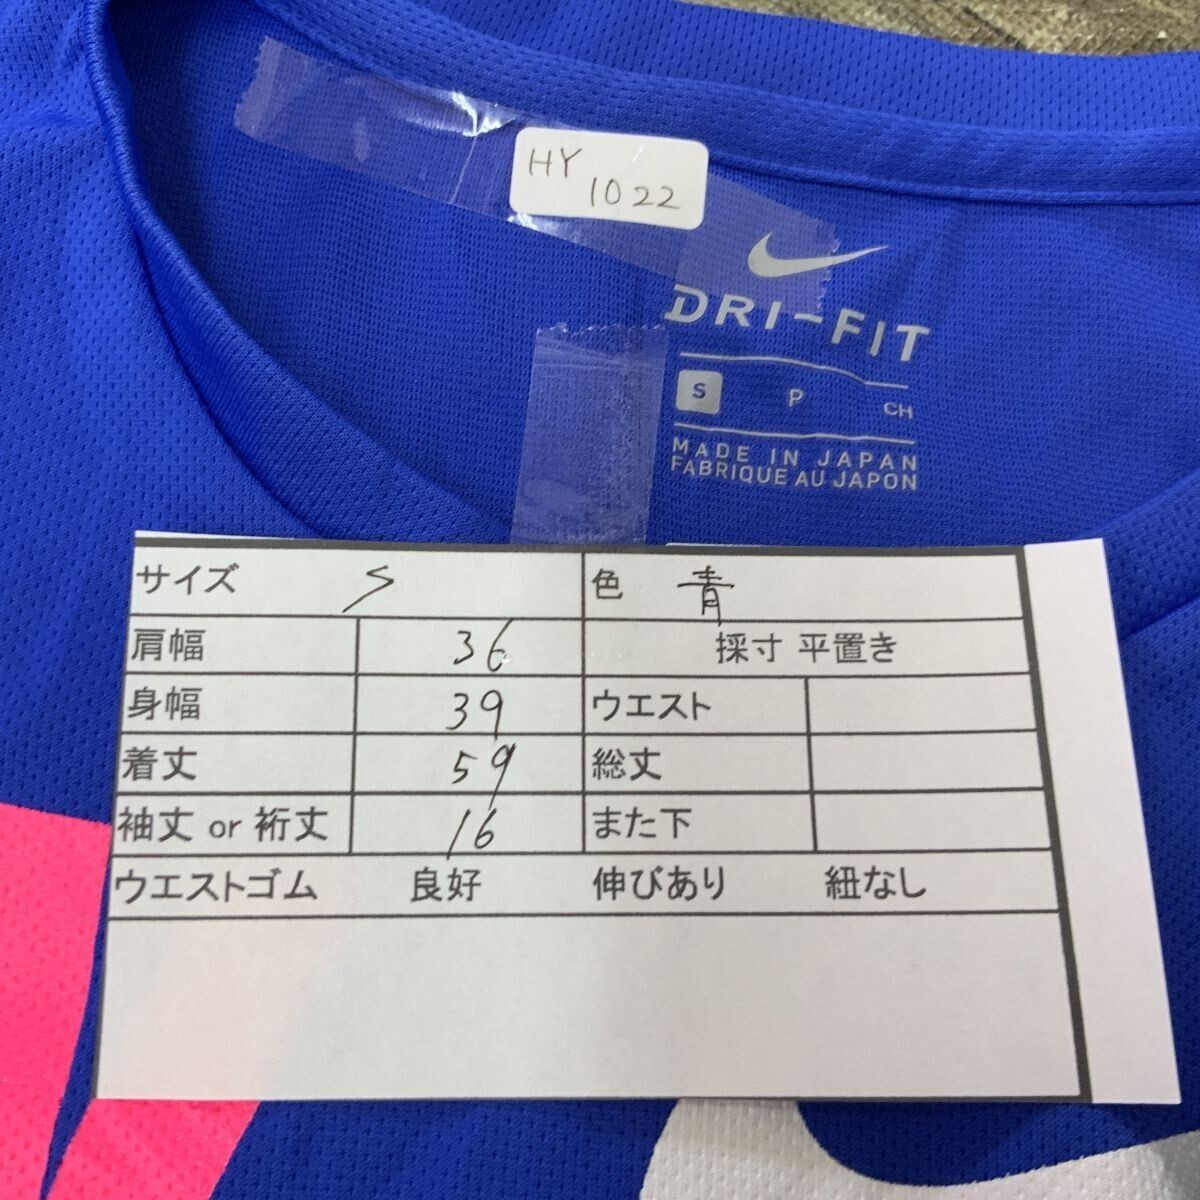 HY
1022
DRI-FIT
S P CH
MADE IN JAPAN
FABRIQUE AU JAPON
サイズ S 色 青
肩幅 36 採寸 平置き
身幅 39 ウエスト
着丈 59 総丈
袖丈 or 裄丈 16 また下
ウエストゴム 良好 伸びあり 紐なし